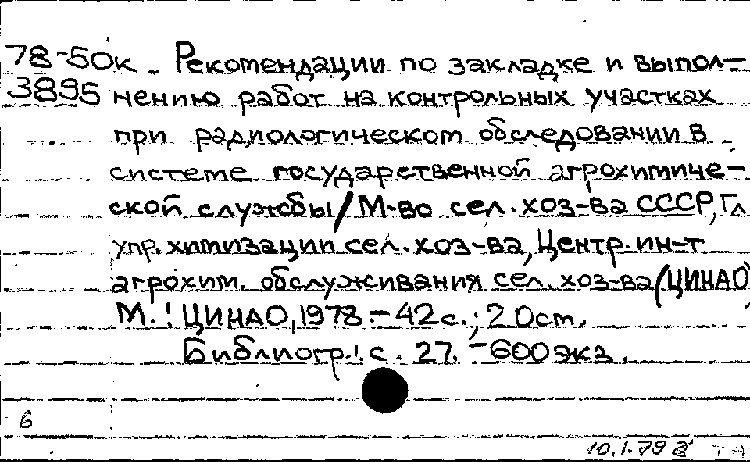 78-50к - Рекомендации по закладке и выпол-
3895 нению работ на контрольных участках
при радиологическом обследовании в
системе государственной агрохимиче-
ской службы / М-во сел. хоз-ва СССР, Гл.
упр. химизации сел. хоз-ва, Центр. ин-т
агрохим. обслуживания сел. хоз-ва (ЦИНАО
М.: ЦИНАО, 1978. - 42 с.; 20 см.
Библиогр.: с. 27. - 600 экз.
6
10.1.79